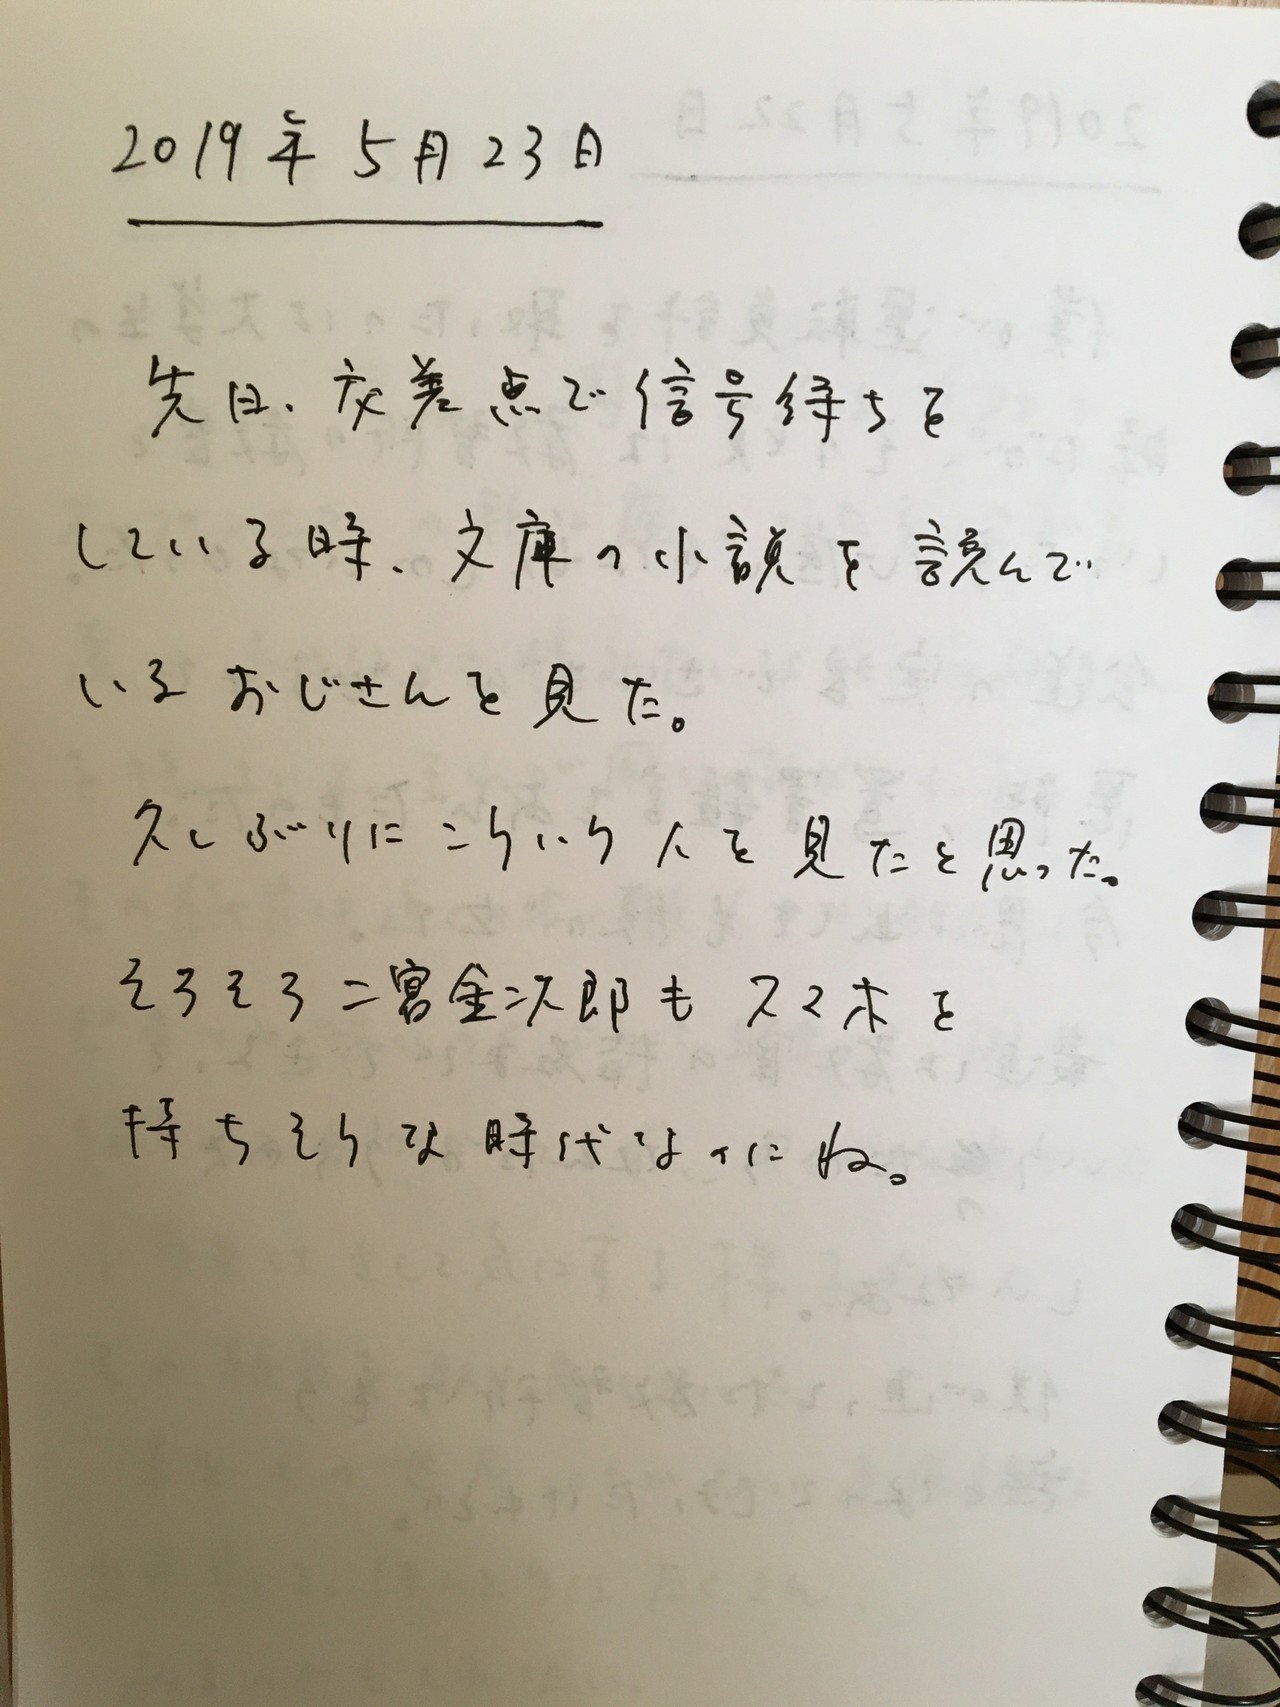 2019年5月23日
先日、交差点で信号待ちを
している時、文庫の小説を読んで
いるおじさんを見た。
久しぶりにこういう人を見たと思った。
そろそろ二宮金次郎もスマホを
持ちそうな時代なのにね。